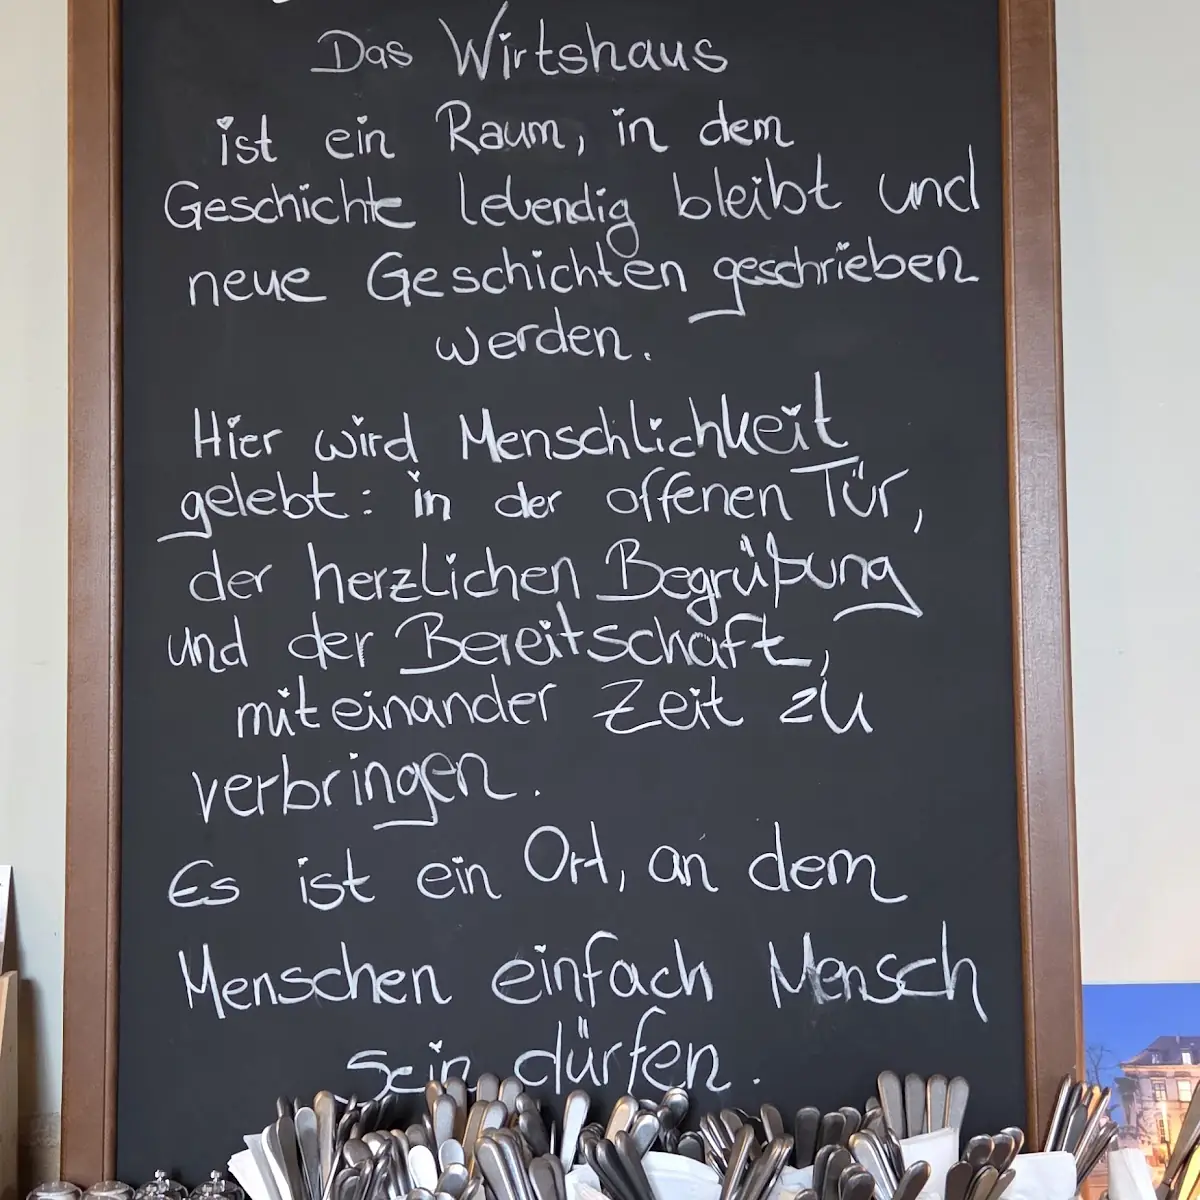 Das Wirtshaus
ist ein Raum, in dem
Geschichte lebendig bleibt und
neue Geschichten geschrieben
werden.
Hier wird Menschlichkeit
gelebt: in der offenen Tür,
der herzlichen Begrüßung
und der Bereitschaft,
miteinander Zeit zu
verbringen.
Es ist ein Ort, an dem
Menschen einfach Mensch
sein dürfen.